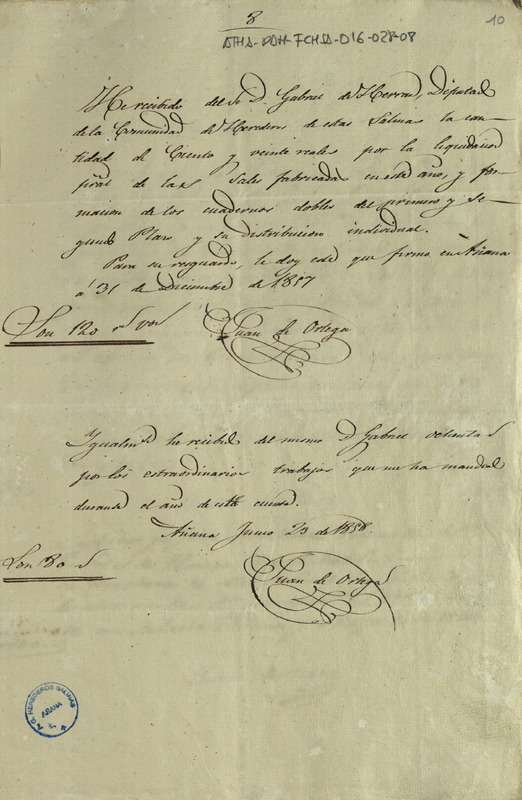 8
10
ATHA-DAH-FCHSA-D16-028-08
He recibido del Sr. D. Gabriel de Herran, Diputado
de la Comunidad de Herederos de estas Salinas la can-
tidad de Ciento y veinte reales por la liquidacion
gral de las Sales fabricadas en este año, y for-
macion de los cuadernos dobles del primero y se-
gundo Plazo y su distribucion individual.
Para su resguardo, le doy este que firmo en Añana
á 31 de Diciembre de 1857
Son 120 rs von
Juan de Ortega
Igualmte he recibido del mismo D Gabriel ochenta rs
por los estraordinarios trabajos que me ha mandado
durante el año de esta cuenta.
Añana Junio 23 de 1858.
Son 80 rs
Juan de Ortega
HEREDEROS SALINAS
AÑANA